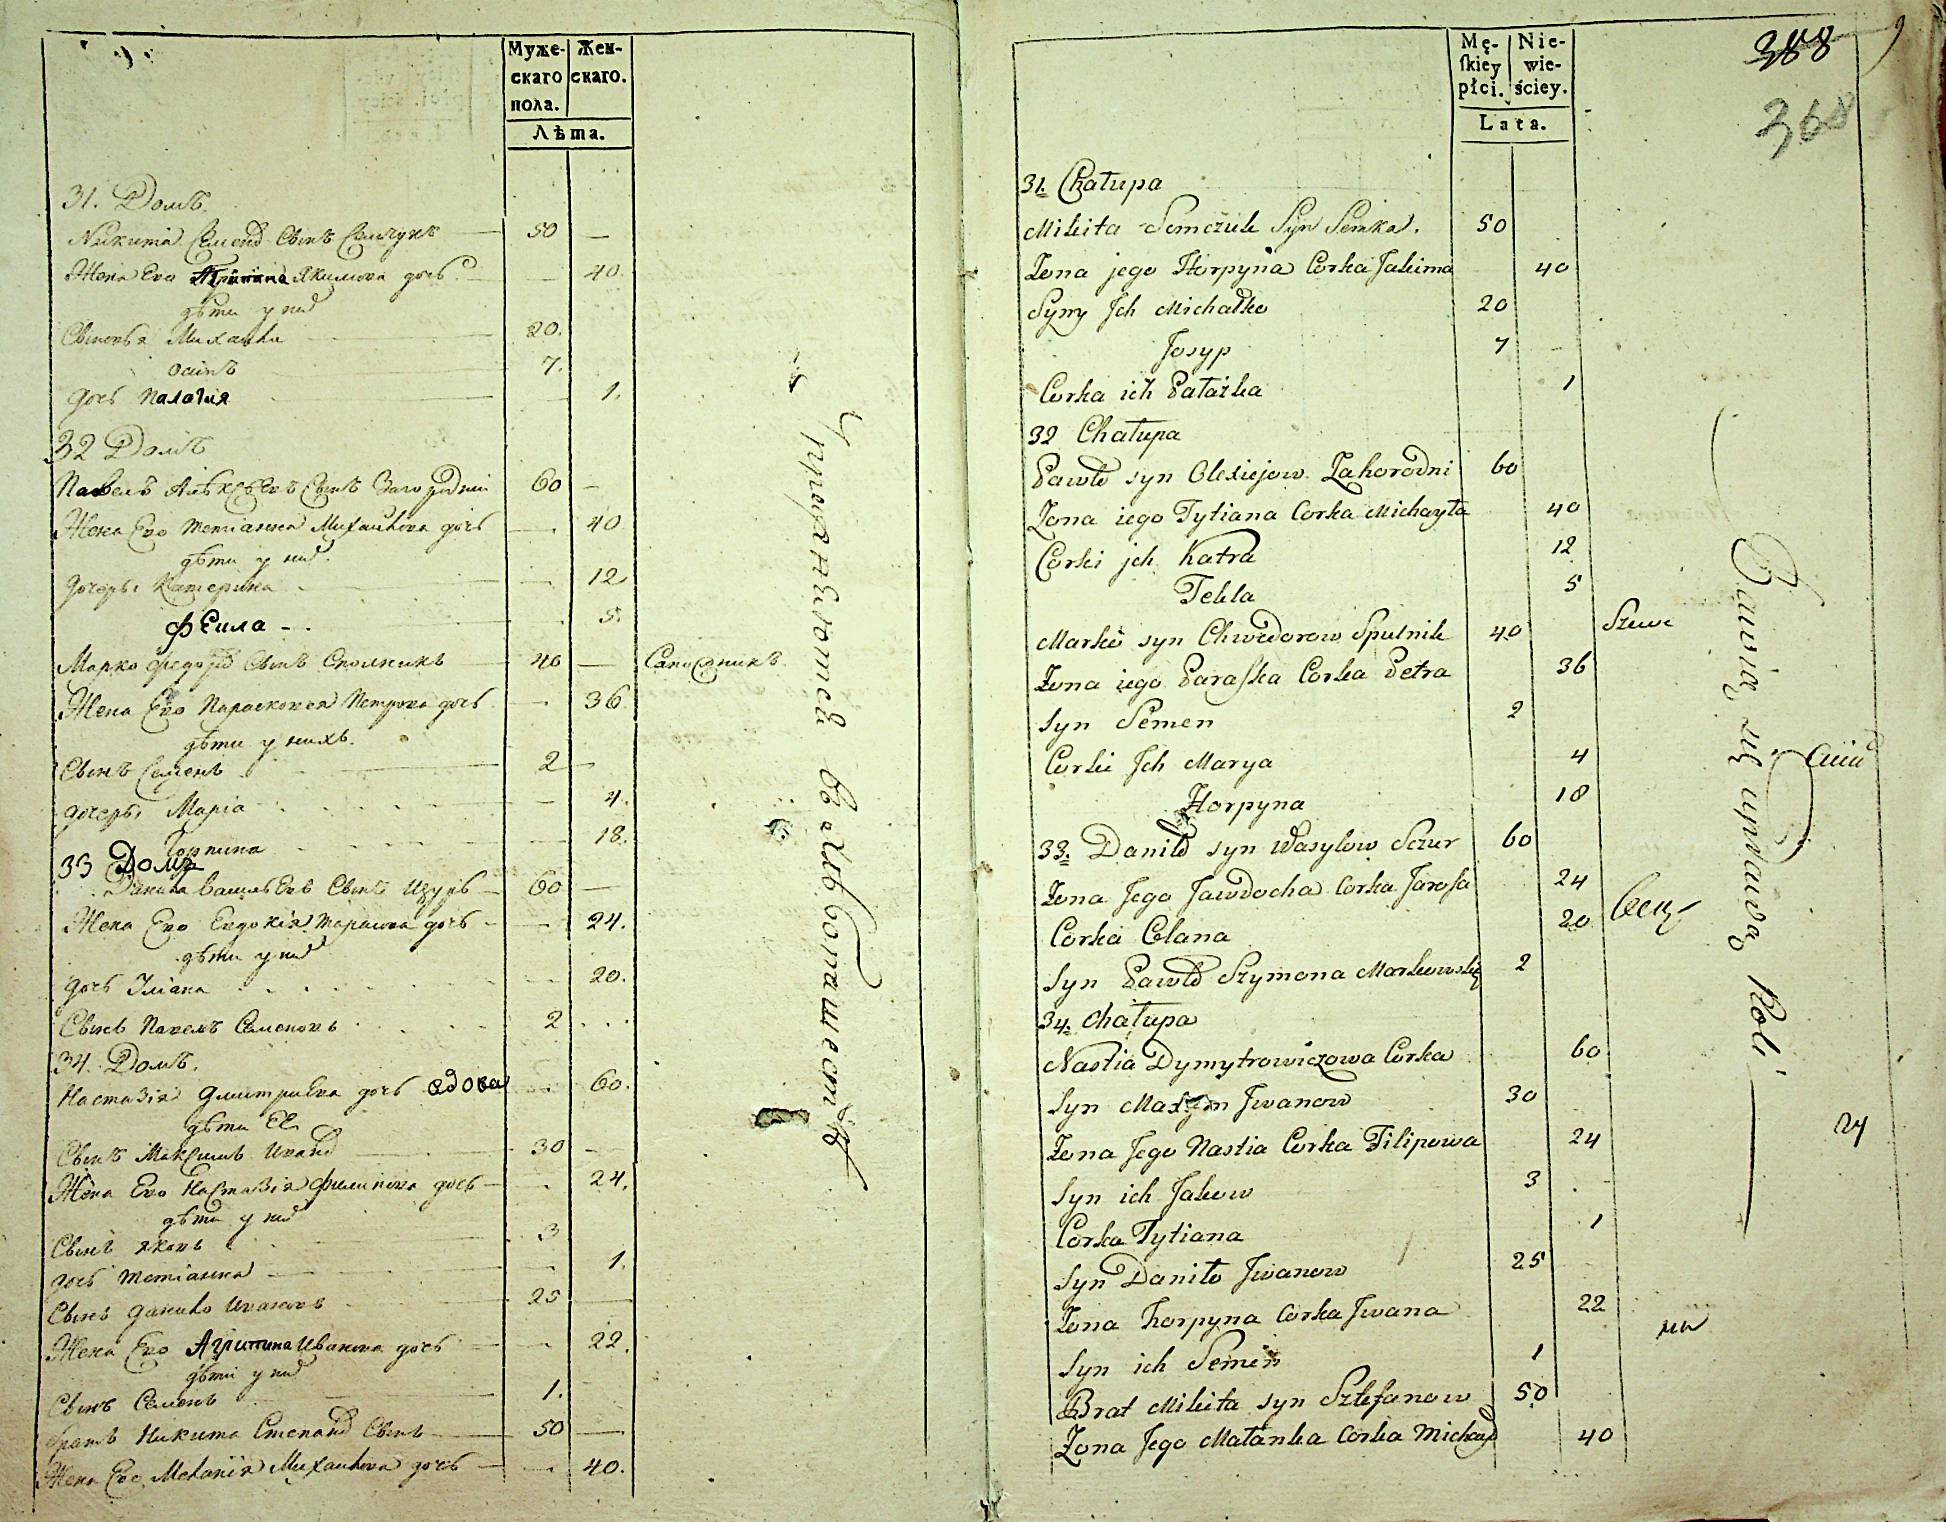 Муже-
скаго
пола.
Жен-
скаго.
Лѣта.
31. Домъ.
Никита Семенов Сынъ Семчукъ — 50 —
Жена Его Агрипина Якимова дочь — 40.
дѣти у них
Сыновья Михайло — 20.
Осипъ 7.
дочь Палагия — 1.
32 Домъ
Павелъ Алексѣевъ Сынъ Загородний 60 —
Жена Его Тетianна Михайлова дочь — 40
дѣти у них.
дочеры Катерина — 12
Фекла - . 5.
Марко Федоров Сынъ 40 — Сапожникъ
Жена Его Парасковея Петрова дочь — 36
дѣти у нихъ.
Сынъ Семенъ 2 —
дочеры Марiа — 4.
Горпина — 18.
33 Домъ
Данила Васильевъ Сынъ Щуръ — 60 —
Жена Его Евдокiя Тарасова дочь — 24.
дѣти у них
дочь Улiана — 20.
Сынъ Павелъ Семеновъ 2 . . .
34. Домъ.
Настазiя Дмитриева дочь вдова — 60.
дѣти Ее
Сынъ Максимъ Иванов 30 —
Жена Его Настазiя Филипова дочь — 24.
дѣти у них
Сынъ Яковъ 3
дочь Тетiанна — 1.
Сынъ Данило Ивановъ 25 —
Жена Его Агрипина Иванова дочь — 22.
дѣти у них
Сынъ Семенъ 1.
братъ Никита Степанов Сынъ — 50 —
Жена Его Меланiя Михайлова дочь — 40.
Упражняются въ хлѣбопашествѣ
388
368
Mę-
skiey
płci.
Nie-
wie-
ściey.
Lata.
31. Chałupa
Mikita Semczuk Syn Semka. 50
Żona jego Horpyna Corka Jakima 40
Syny Jch Michałko 20
Josyp 7
Corka ich Pałażka 1
32 Chałupa
Pawło syn Olexiejow Zahorodni 60
Żona iego Tytiana Corka Michayła 40
Corki jch Katra 12
Tekla 5
Marko syn Chwedorow Spulnik 40 Szewc
Żona iego Paraska Corka Petra 36
Syn Semen 2
Corki Jch Marya 4
Horpyna 18
33. Daniło syn Wasylow Sczur 60
Żona Jego Jawdocha Corka Jarosa 24
Corka Olana 20
Syn Pawło Szymona 2
34. Chałupa
Nastia Dymytrowiczowa Corka 60
Syn Maxym Jwanow 30
Żona Jego Nastia Corka Filipowa 24
Syn ich Jakow 3
Corka Tytiana 1
Syn Daniło Jwanow 25
Żona Horpyna Corka Jwana 22
Syn ich Semen 1
Brat Mikita syn Sztefanow 50
Żona Jego Małanka Corka Michaył 40
Bawią się uprawą Roli